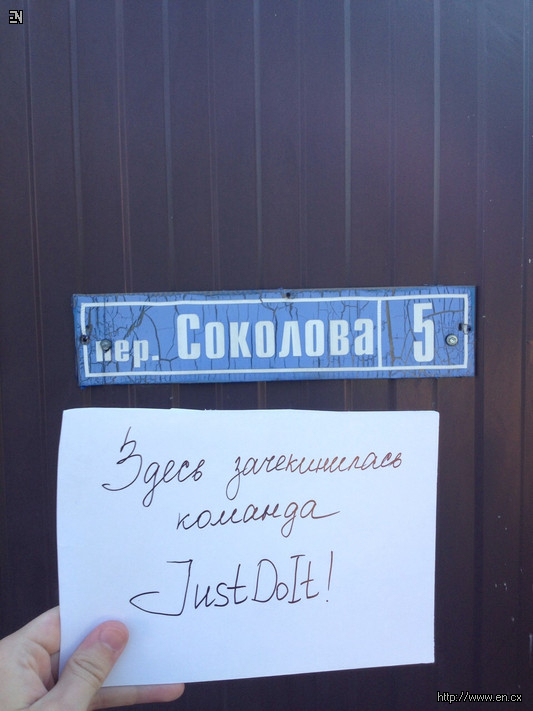 EN
пер. Соколова 5
Здесь зачекинилась
команда
JustDoIt!
http://www.en.cx